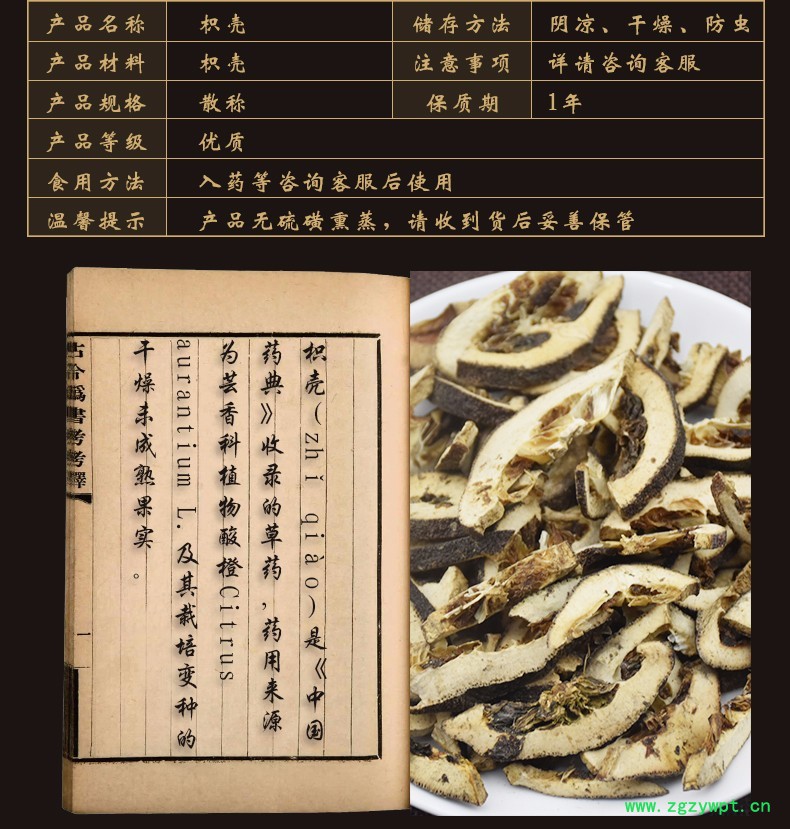 产品名称 枳壳 储存方法 阴凉、干燥、防虫
产品材料 枳壳 注意事项 详请咨询客服
产品规格 散称 保质期 1年
产品等级 优质
食用方法 入药等咨询客服后使用
温馨提示 产品无硫磺熏蒸，请收到货后妥善保管
枳壳(zhǐ qiào)是《中国
药典》收录的草药,药用来源
为芸香科植物酸橙Citrus
aurantium L.及其栽培变种的
干燥未成熟果实。
古今僞書考考釋
一
www.zgzywpt.cn